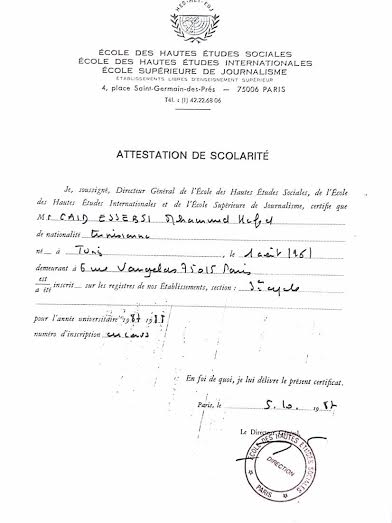 HES-HEI-ESJ
ÉCOLE DES HAUTES ÉTUDES SOCIALES
ÉCOLE DES HAUTES ÉTUDES INTERNATIONALES
ÉCOLE SUPÉRIEURE DE JOURNALISME
ÉTABLISSEMENTS LIBRES D'ENSEIGNEMENT SUPÉRIEUR
4, place Saint-Germain-des-Prés — 75006 PARIS
Tél. : (1) 42.22.68.06
ATTESTATION DE SCOLARITÉ
Je, soussigné, Directeur Général de l'École des Hautes Études Sociales, de l'École
des Hautes Études Internationales et de l'École Supérieure de Journalisme, certifie que
Mr CAID ESSEBSI Mohammed Hafed
de nationalité tunisienne
né à Tunis, le 1 août 1961
demeurant à 6 rue 75015 Paris
est
a été inscrit sur les registres de nos Établissements, section : 3e cycle
pour l'année universitaire 1987 198
numéro d'inscription en cours
En foi de quoi, je lui délivre le présent certificat.
Paris, le 5.10. 1987
Le Directeur Général,
ÉCOLE DES HAUTES ÉTUDES SOCIALES
DIRECTION
PARIS